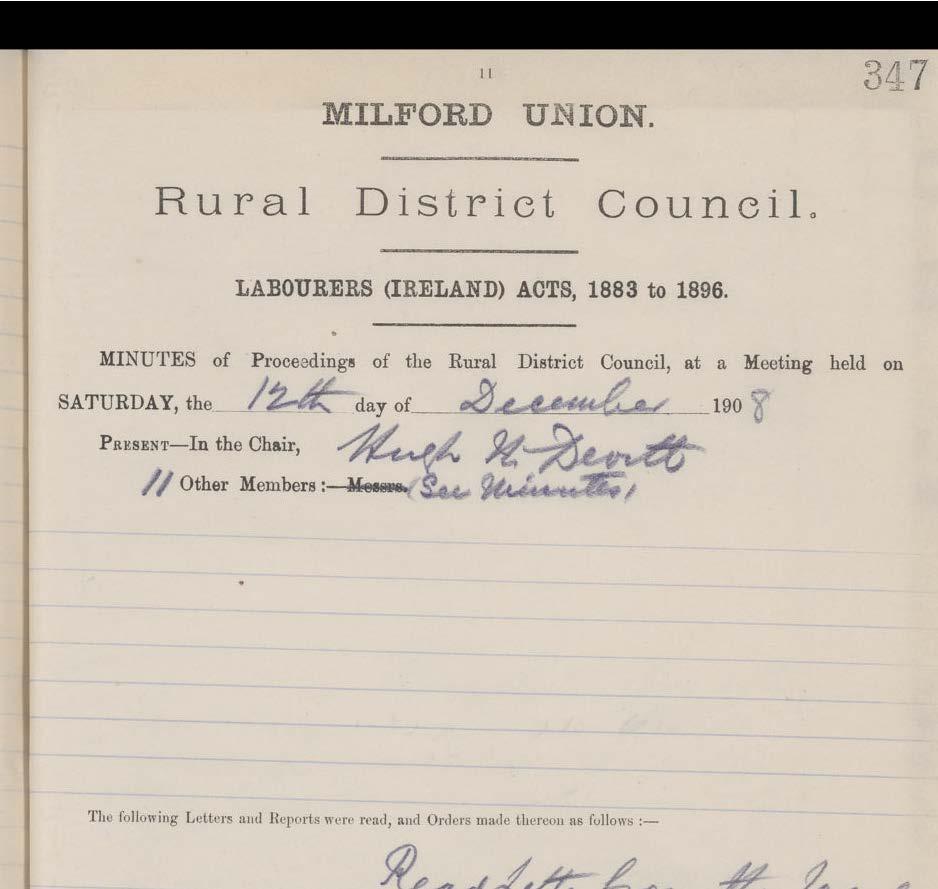 11
347
MILFORD UNION.
Rural District Council.
LABOURERS (IRELAND) ACTS, 1883 to 1896.
MINUTES of Proceedings of the Rural District Council, at a Meeting held on
SATURDAY, the 12th day of December 1908
PRESENT—In the Chair, Hugh Mc Devitt
11 Other Members :—Messrs. (See Minutes)
The following Letters and Reports were read, and Orders made thereon as follows :—